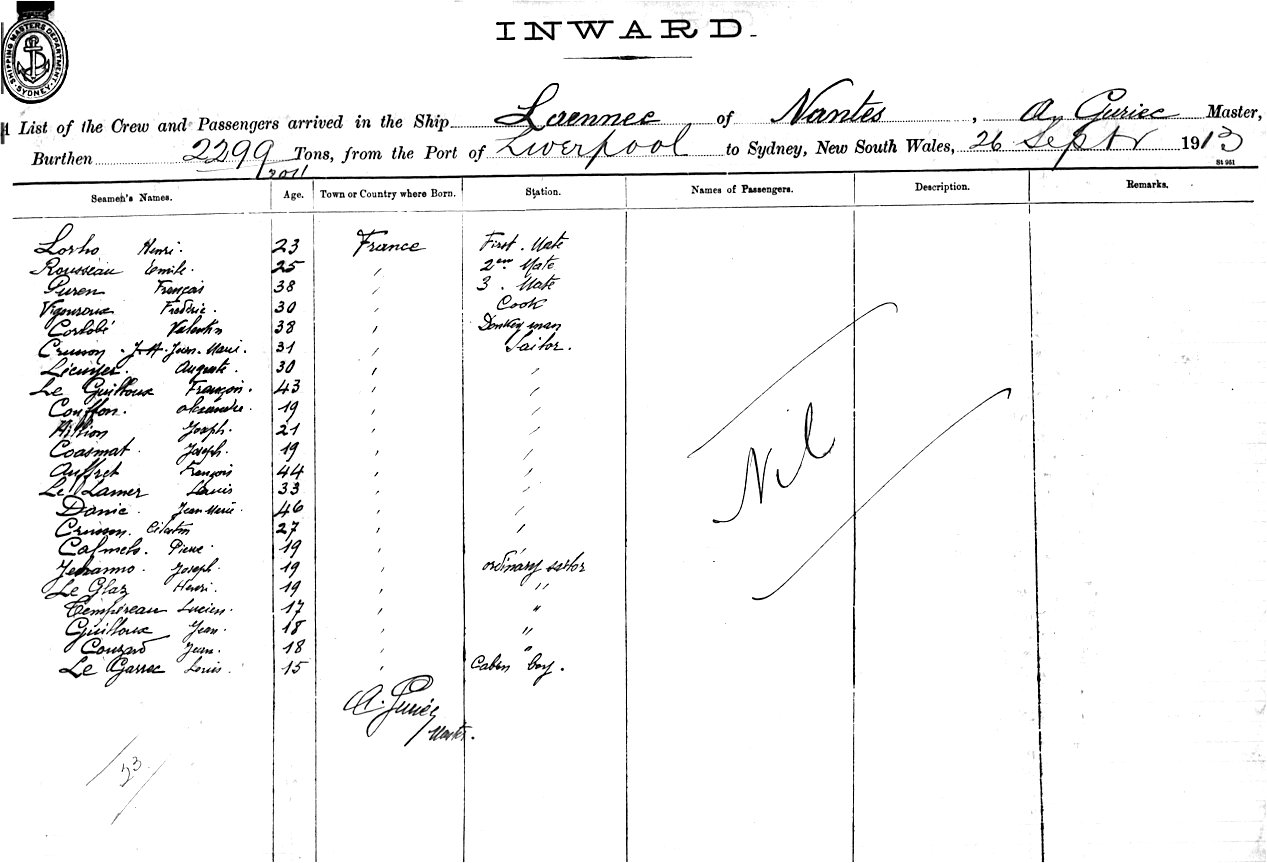 SHIPPING MASTERS DEPARTMENT. SYDNEY.
INWARD.
List of the Crew and Passengers arrived in the Ship Laennec of Nantes, A. Guriec Master,
Burthen 2299 Tons, from the Port of Liverpool to Sydney, New South Wales, 26 Septr 1913
2011
St 951
Seamen's Names. Age. Town or Country where Born. Station. Names of Passengers. Description. Remarks.
Lorho Henri. 23 France First. Mate
Rousseau Emile. 25 " 2em Mate
Puren François 38 " 3. Mate
Vigouroux Frédéric. 30 " Cook
Corlobé Valentin 38 " Donkey man
Crusson Jean-Marie. 31 " Sailor.
Auguste 30 " "
Le Guilloux François. 43 " "
Couffon. 19 " "
Hillion Joseph. 21 " "
Coasmat Joseph. 19 " "
Auffret François 44 " "
Le Lamer Louis 33 " "
Danic Jean Marie 46 " "
Crusson. 27 " "
Calmels. Pierre 19 "
Jehanno. Joseph. 19 " ordinary sailor
Le Glaz Henri. 19 " "
Tempéreau Lucien. 17 " "
Guilloux Jean. 18 " "
Jean. 18 " "
Le Garrec Louis. 15 " Cabin boy.
Nil
A. Guriec
Master.
23